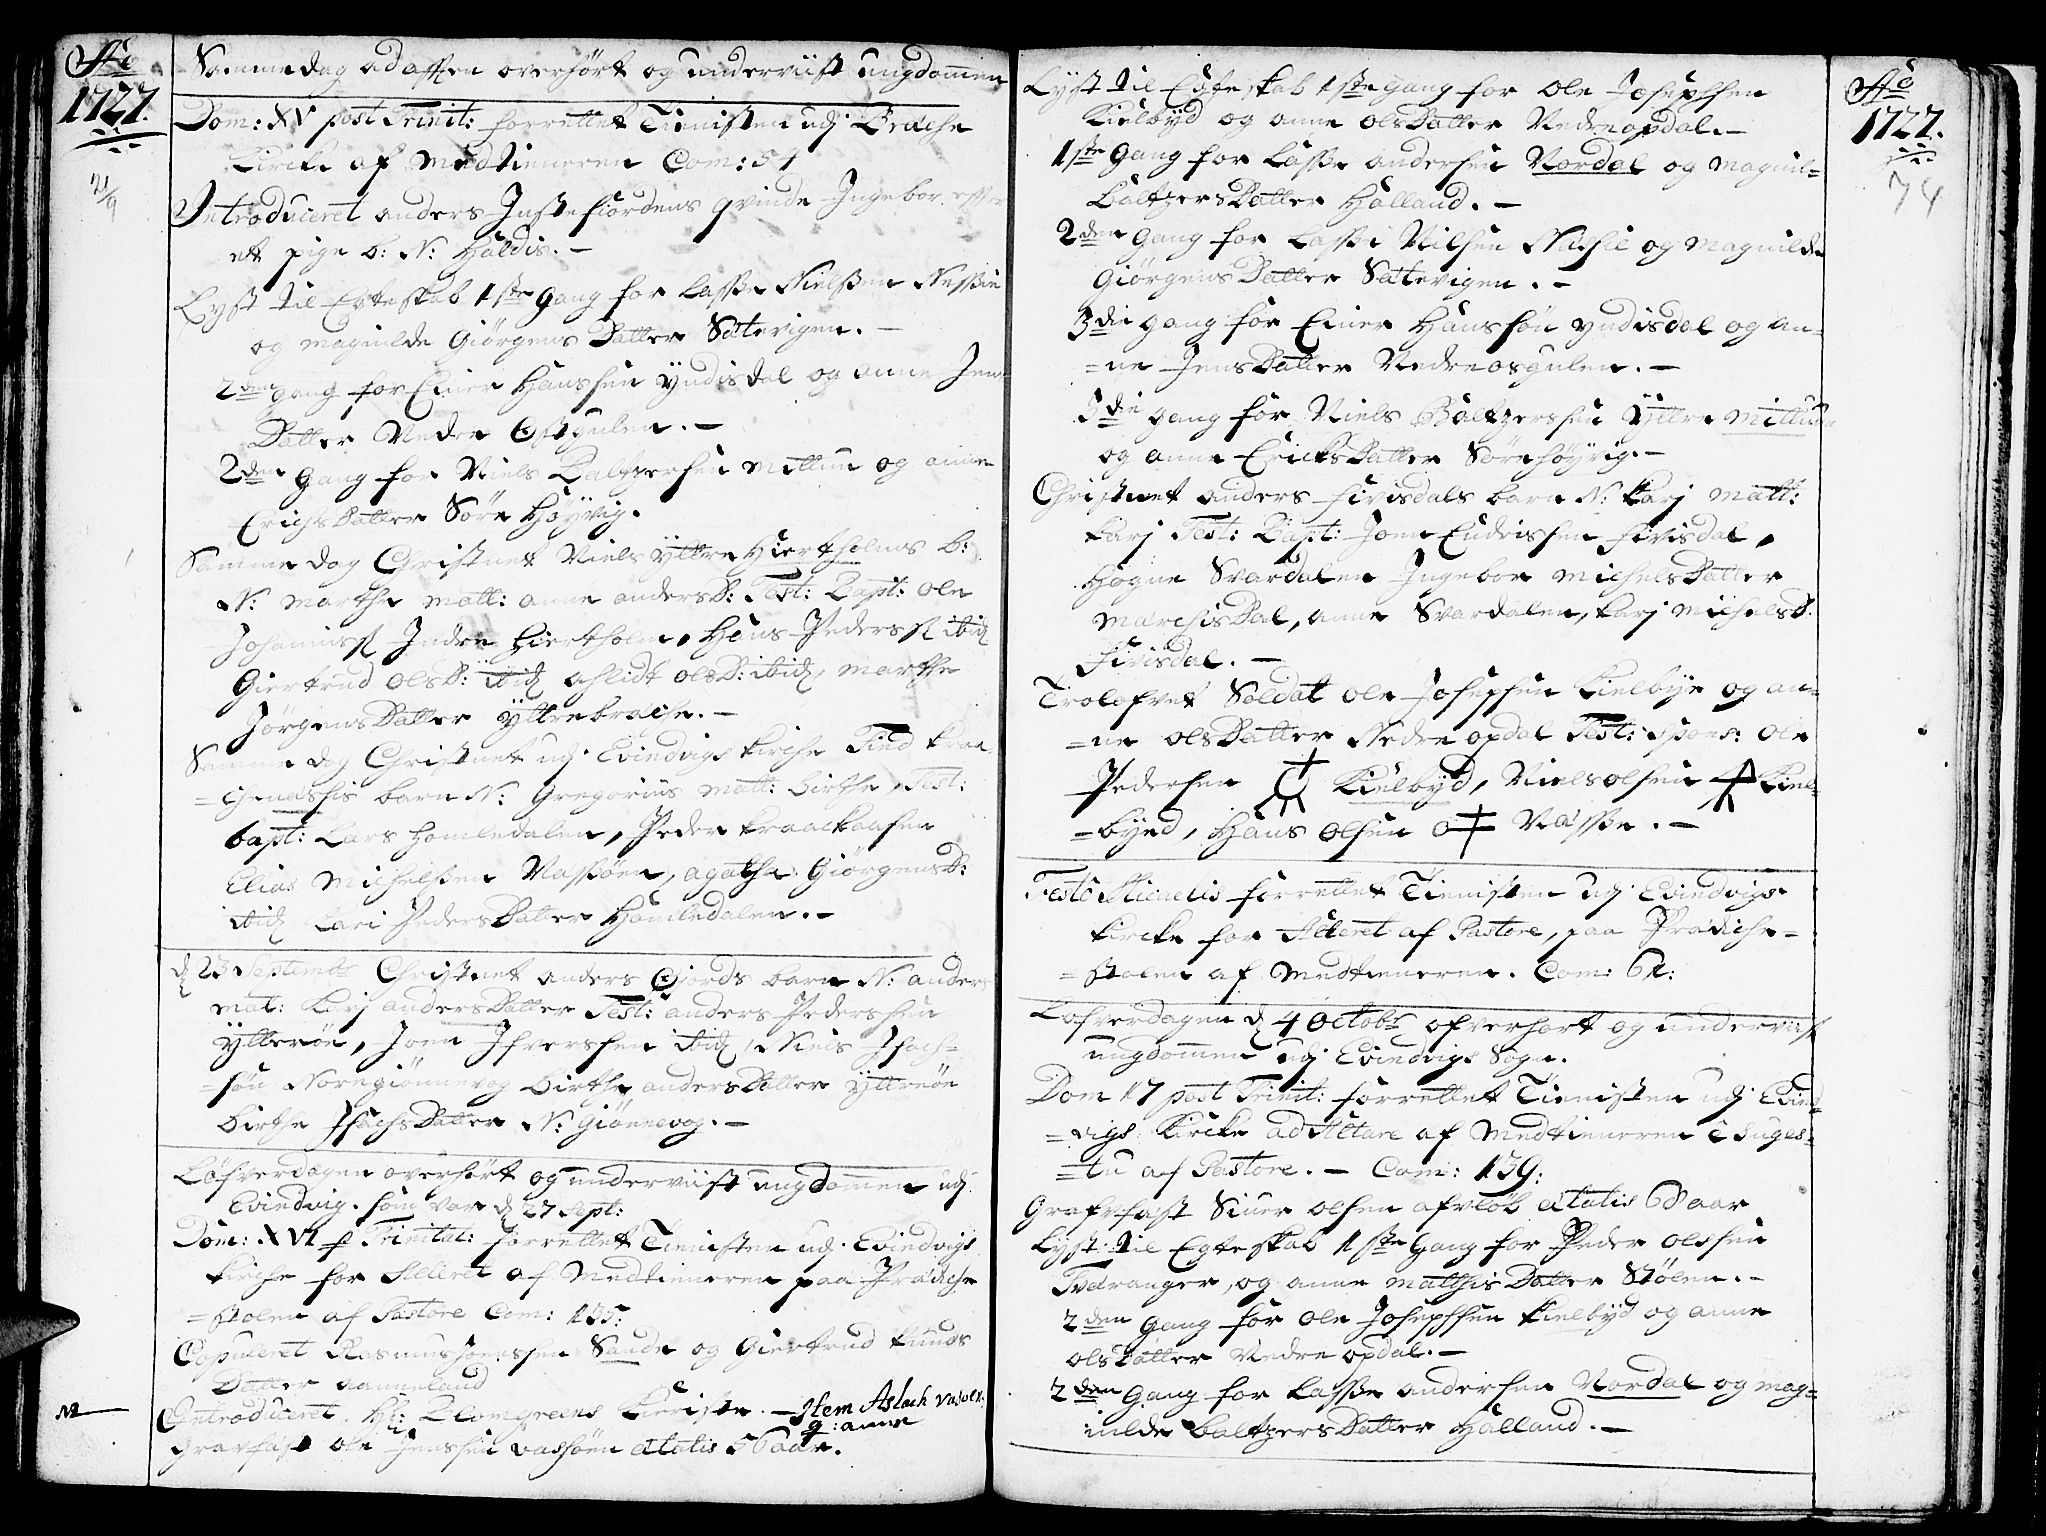 Aō
1727.
21/9
Samme dag ad afften overhört og underviist ungdommen
Dom: XV post Trinit: forrettet Tienisten udj Bræche
Kircke af Medtieneren Com: 54
Introduceret anders Justefiordens qvinde Ingebor efter
et pige b: N: Haldis. –
Lyst til Egteskab 1ste gang for Lasse Nielssen Nessie
og magnilde Giörgens Datter Sætevigen. –
2den gang for Einer Hanssen Yndisdal og anne Jens
Datter Nedre Osgulen. –
2den Gang for Niels Baltzersen Mittun og anne
Erichs Datter Söre Höyvig.
Samme dag Christnet Niels Yttre Hiertholms b:
N: Marthe matt: anne andersD: Test: Bapt: Ole
Johanniss: Indre Hiertholm, Hans Pederss: ibid
Giertrud OlsD: ibid, OlsD: ibid, marthe
Jörgens Datter Yttrebræche. –
Samme dag Christnet udj Evindvigs Kirche Find Kraa-
=chenæssis barn N: Gregorius matt: birthe, Test:
bapt: Lars Homledalen, Peder Kraackaasen
Elias Michelssen Vassöen, agatha GiörgensD:
ibid Kari Peders Datter Homledalen. –
d 23 Septembr Christnet anders Giords barn N: anders
mat: Karj anders Datter Test: anders Pedersen
Ytteröe, Joen Ifversen ibid, Niels Isach-
=sön Noregiönnevog birthe anders Datter Yttreöe
birthe Isachs Datter N: Giönnevog. –
Löfverdagen overhört og underviist ungdommen udj
Evindvig som var d 27 Sept:
Dom: XVI p Trinitat: forrettet Tienisten udj Evindvigs
Kirche for Alteret af Medtieneren paa Prædiche
=stolen af Pastore Com: 135:
Copuleret Rasmus Jonssen Sande og Giertrud Knuds
Datter aanneland
Introduceret Hr: Blomgreens Kieriste. – Item Aslach
q: anne
Grafhæst Ole Jenssen Vassöen ætatis 56 aar.
Aō
1727.
74
Lyst til Egteskab 1ste gang for Ole Josephsen
Kielbyd og anne Ols Datter Nedreopdal. –
1ste Gang for Lasse andersen Nordal og magnil=
Baltzers Datter Halland. –
2den Gang for Lasse Nilsen Næsie og magnilde
Giörgens Datter Sætevigen. –
3die gang for Einer Hanssön Yndisdal og an-
=ne Jens Datter Nedreosgulen. –
3die gang for Niels Baltzersen Yttre Mittun
og anne Ericks Datter Sörehöyvig. –
Christnet anders Fivisdals barn N: Karj matt:
Karj Test: Bapt: Joen Endrissen Fivisdal,
Hogne Svardalen Ingebor Michels Datter
Marchisdal, anne Svardalen, Karj MichelsD:
Fivisdal. –
Trolofvet Soldat Ole Josephsen Kielbye og an-
=ne Ols Datter Nedre opdal Test: Spons: Ole
Pedersen Kielbyd, Niels olsen Kiel-
=byed, Hans Olsen Næsse. –
Festo Michaelis forrettet Tienisten udj Evindvigs
Kircke for Alteret af Pastore, paa Prædiche-
=stolen af Medtieneren. Com: 61:
Löfverdagen d 4 Octobr ofverhört og underviist
ungdommen udj Evindvigs Sogn.
Dom 17 post Trinit: forrettet Tienisten udj Evind-
=vigs Kircke ad Altare af Medtieneren è suges-
=tu af Pastore. – Com: 139:
Grafvfæst Siuer Olsen afvlöb ætatis 68 aar
Lyst til Egteskab 1ste Gang for Peder Olssen
Tvedranger, og anne Matthis Datter Stölen. –
2den gang for Ole Josephsen Kielbyd og anne
Ols Datter Nedreopdal. –
2den gang for Lasse andersen Nordal og mag-
nilde Baltzers Datter Halland. –